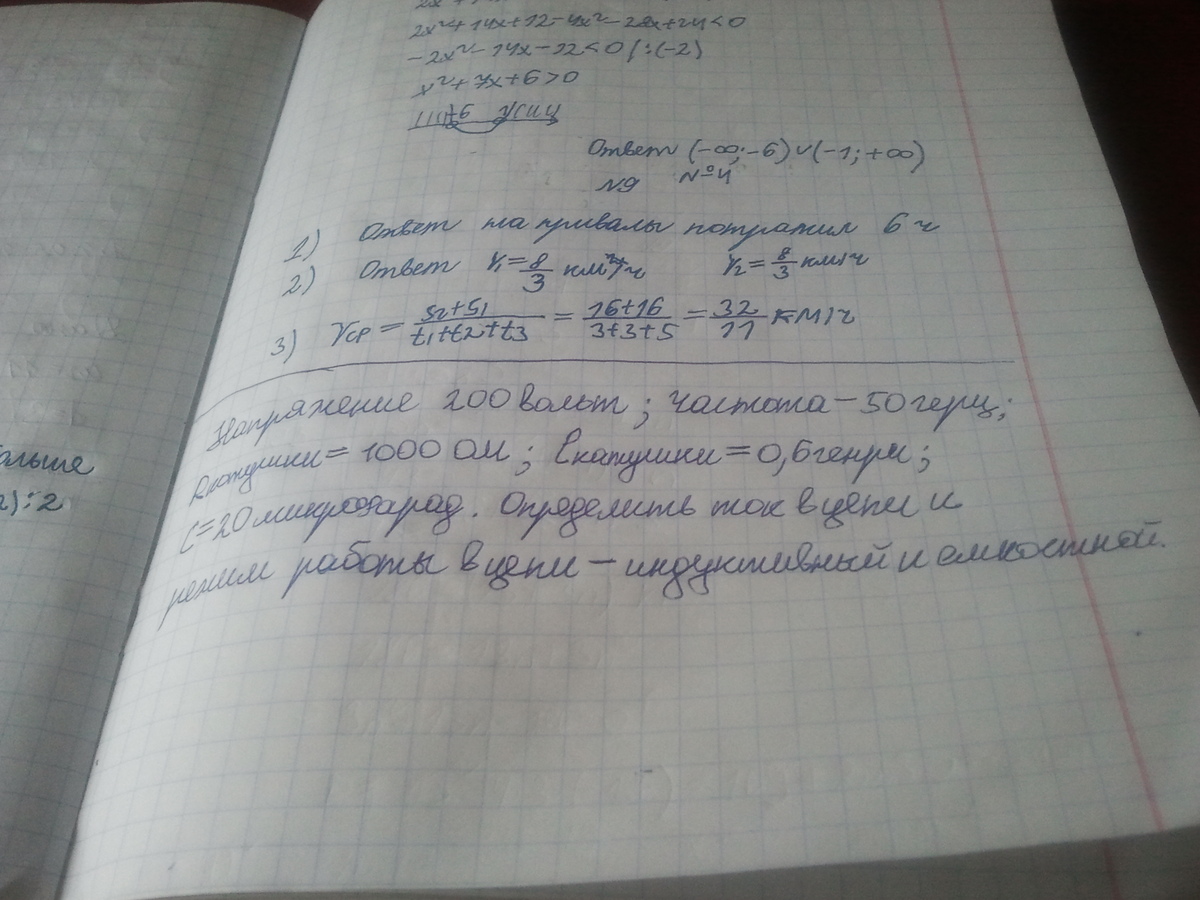 2x²+14x+12-4x²-28x+24<0
-2x²-14x-12<0 /:(-2)
x²+7x+6>0
Ответ (-∞;-6)∪(-1;+∞)
№9 №4
1) Ответ на привалы потратил 6 ч
2) Ответ V₁=8/3 км/ч V₂=8/3 км/ч
3) Vср = S₂+S₁/t₁+t₂+t₃ = 16+16/3+3+5 = 32/11 км/ч
Напряжение 200 вольт; частота - 50 герц;
Rкатушки = 1000 Ом; Lкатушки = 0,6 генри;
C=20 микрофарад. Определить ток в цепи и
режим работы в цепи - индуктивный и емкостной.
ольше
):2